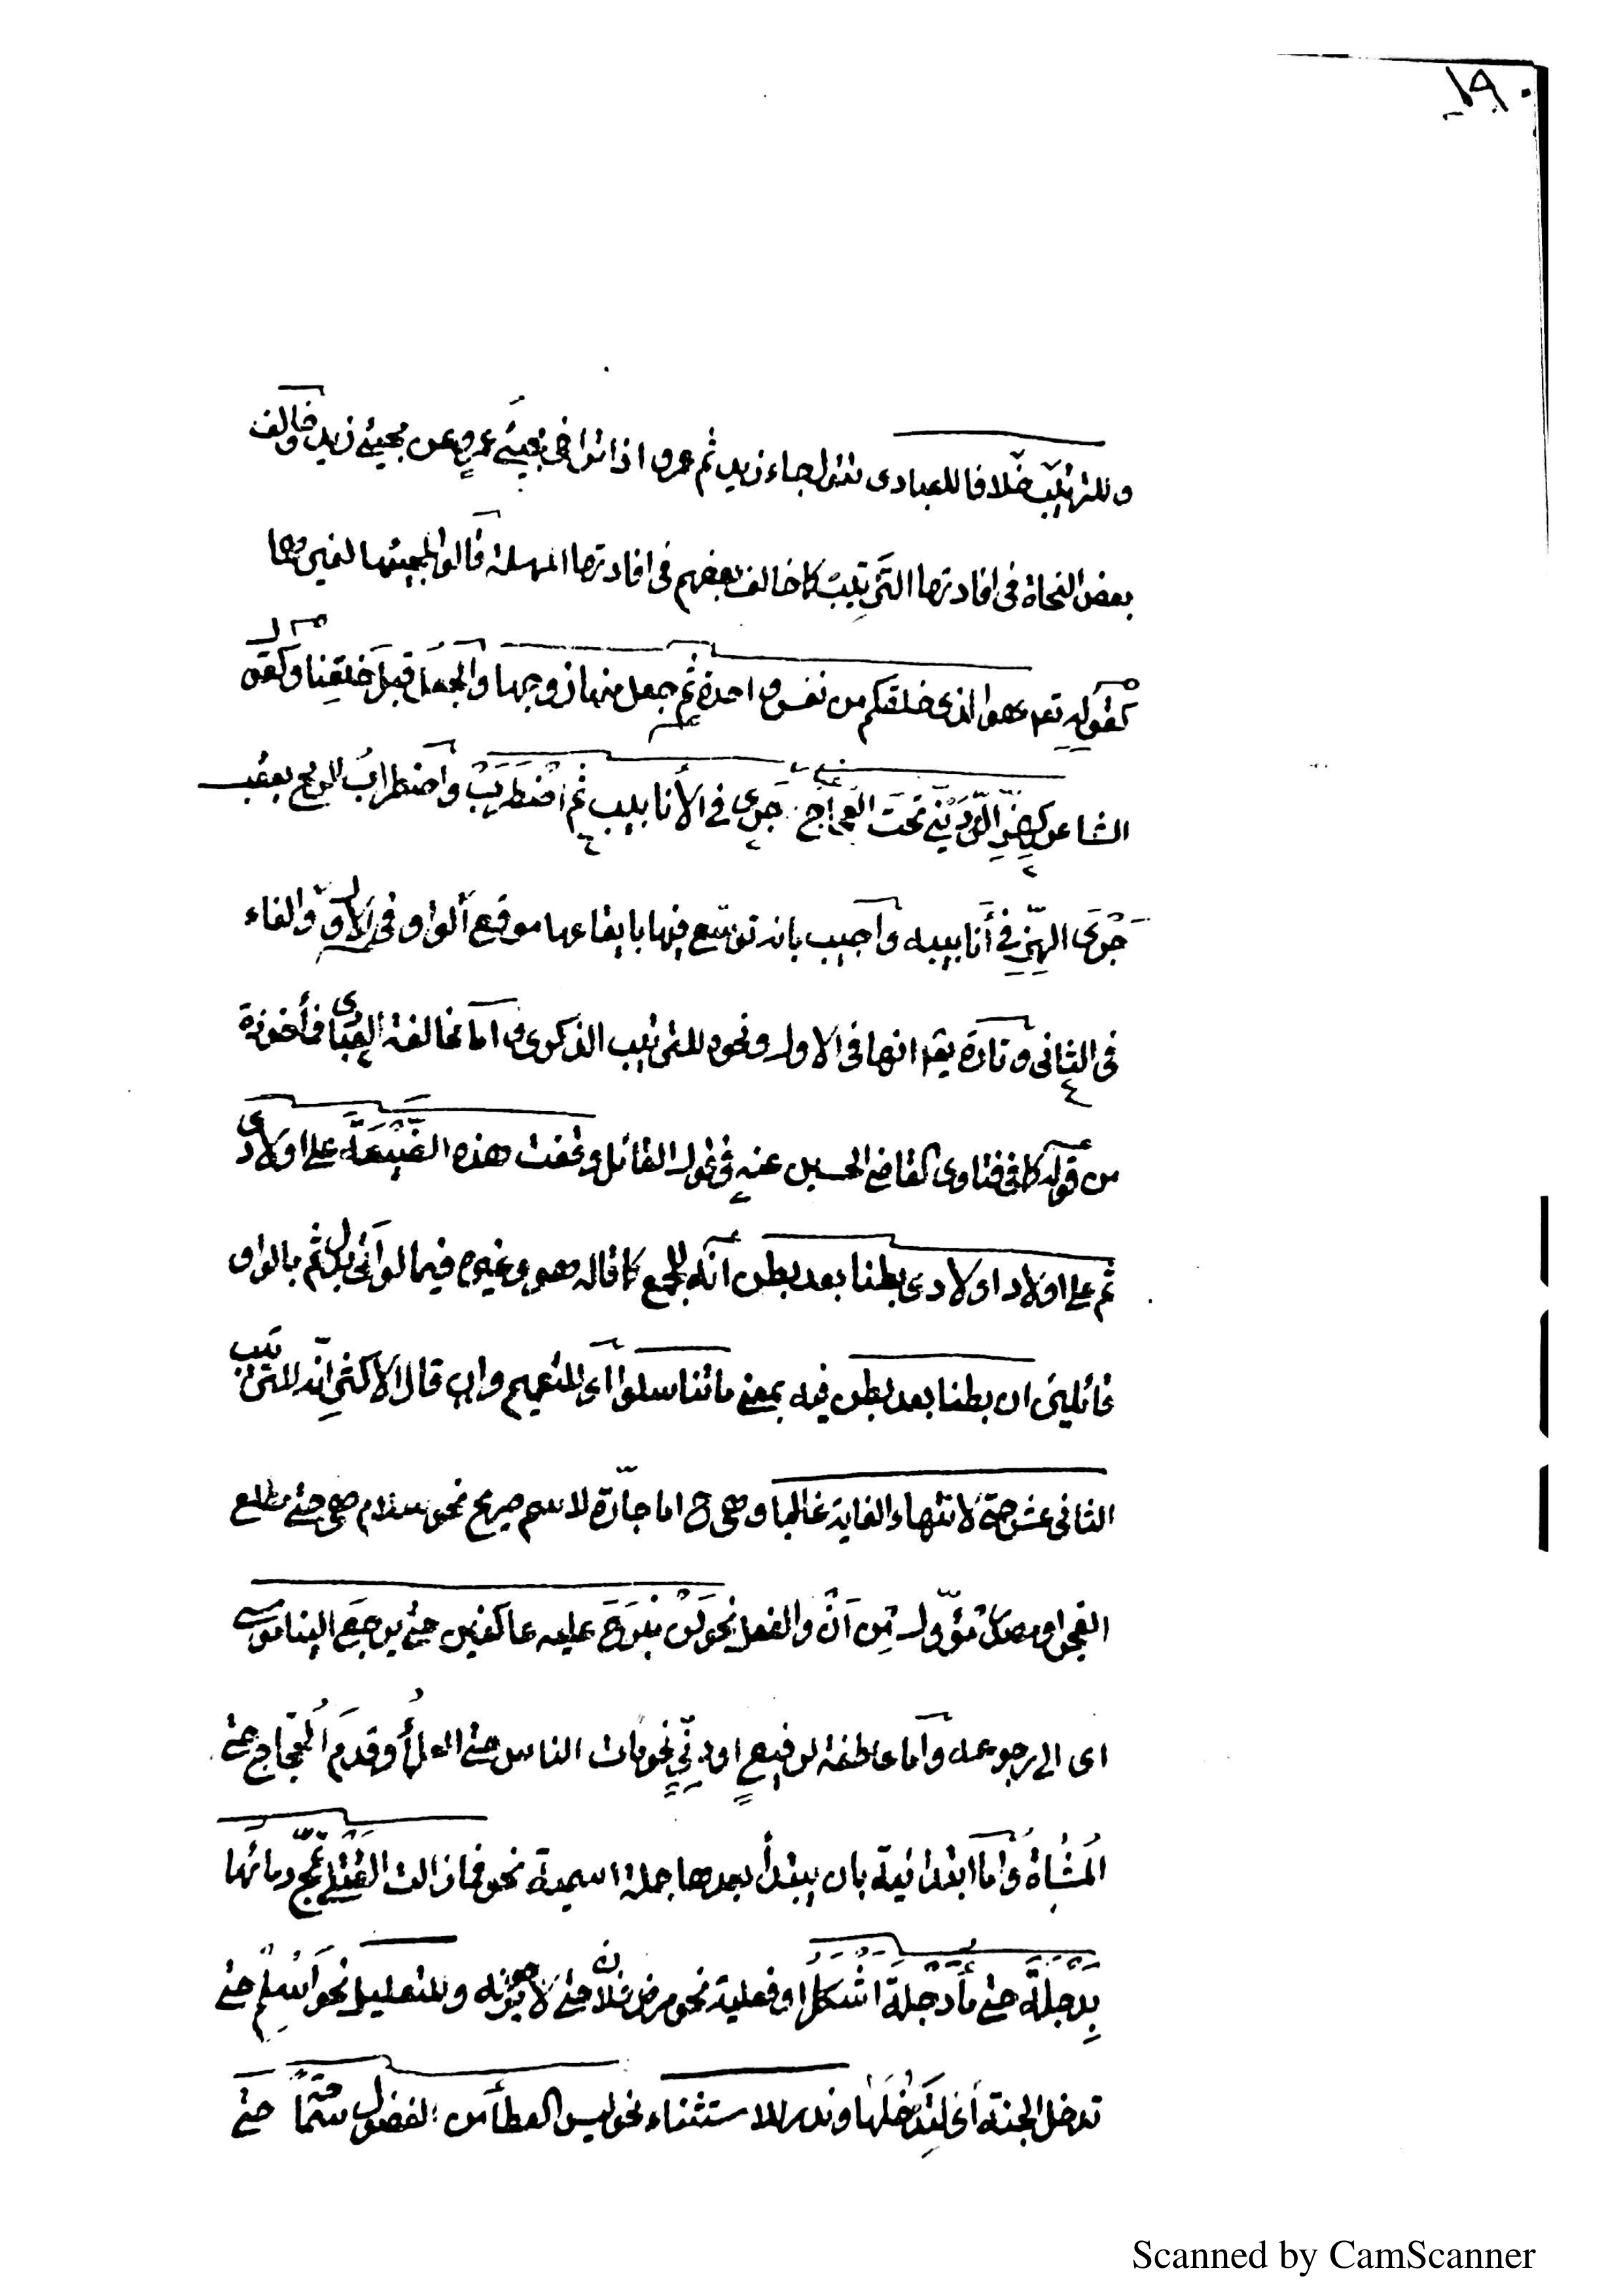 ١٩٠
وللترتيب خلافا للعبادى تقول جاء زيد ثم عمرو اذا تراخى مجيئ عمرو عن مجيئ زيد وخالف
بعض النحاة فى افادتها الترتيب كما خالف بعضهم فى افادتها المهلة قالوا لمجيئها لغيرهما
كقوله تعه هو الذى خلقكم من نفس واحدة ثم جعل منها زوجها والجعل قبل خلقنا وكقول
الشاعر كهز الردينى تحت العجاج جرى فى الأنابيب ثم اضطرب واضطراب الرمح يعقب
جرى الهز فى أنابيبه وأجيب بانه توسع فيها بايقاعها موقع الواو فى الاول والفاء
فى الثانى وتارة يقه انها فى الاول ونحوه للترتيب الذكرى واما مخالفة العبادى فمأخوذة
من قوله كما فى فتاوى القاضى الحسين عنه فى قول القائل وقفت هذه الضيعة على اولادى
ثم على اولاد اولادى بطنا بعد بطن انه للجمع كما قاله هو وغيره فيما لو اتى بدل ثم بالواو
قائلين ان بطنا بعد بطن فيه بمعنى ما تناسلوا اى للتعميم وان قال الاكثر انه للترتيب
الثانى عشر حتى لانتهاء الغاية غالبا وهى ح اما جارة لاسم صريح نحو سلام هى حتى مطلع
الفجر او مصدر مؤول من أن والفعل نحو لن نبرح عليه عاكفين حتى يرجع الينا موسى
اى الى رجوعه واما عاطفة لرفيع او دنى نحو مات الناس حتى العلماء وقدم الحجاج حتى
المشاة واما ابتدائية بان يبتدأ بعدها جملة اسمية نحو فما زالت القتلى تمج دمائها
بدجلة حتى ماء دجلة اشكل او فعلية نحو مرض فلان حتى لا يرجونه وللتعليل نحو أسلم حتى
تدخل الجنة أى لتدخلها وندر للاستثناء نحو ليس العطاء من الفضول سماحة حتى
Scanned by CamScanner